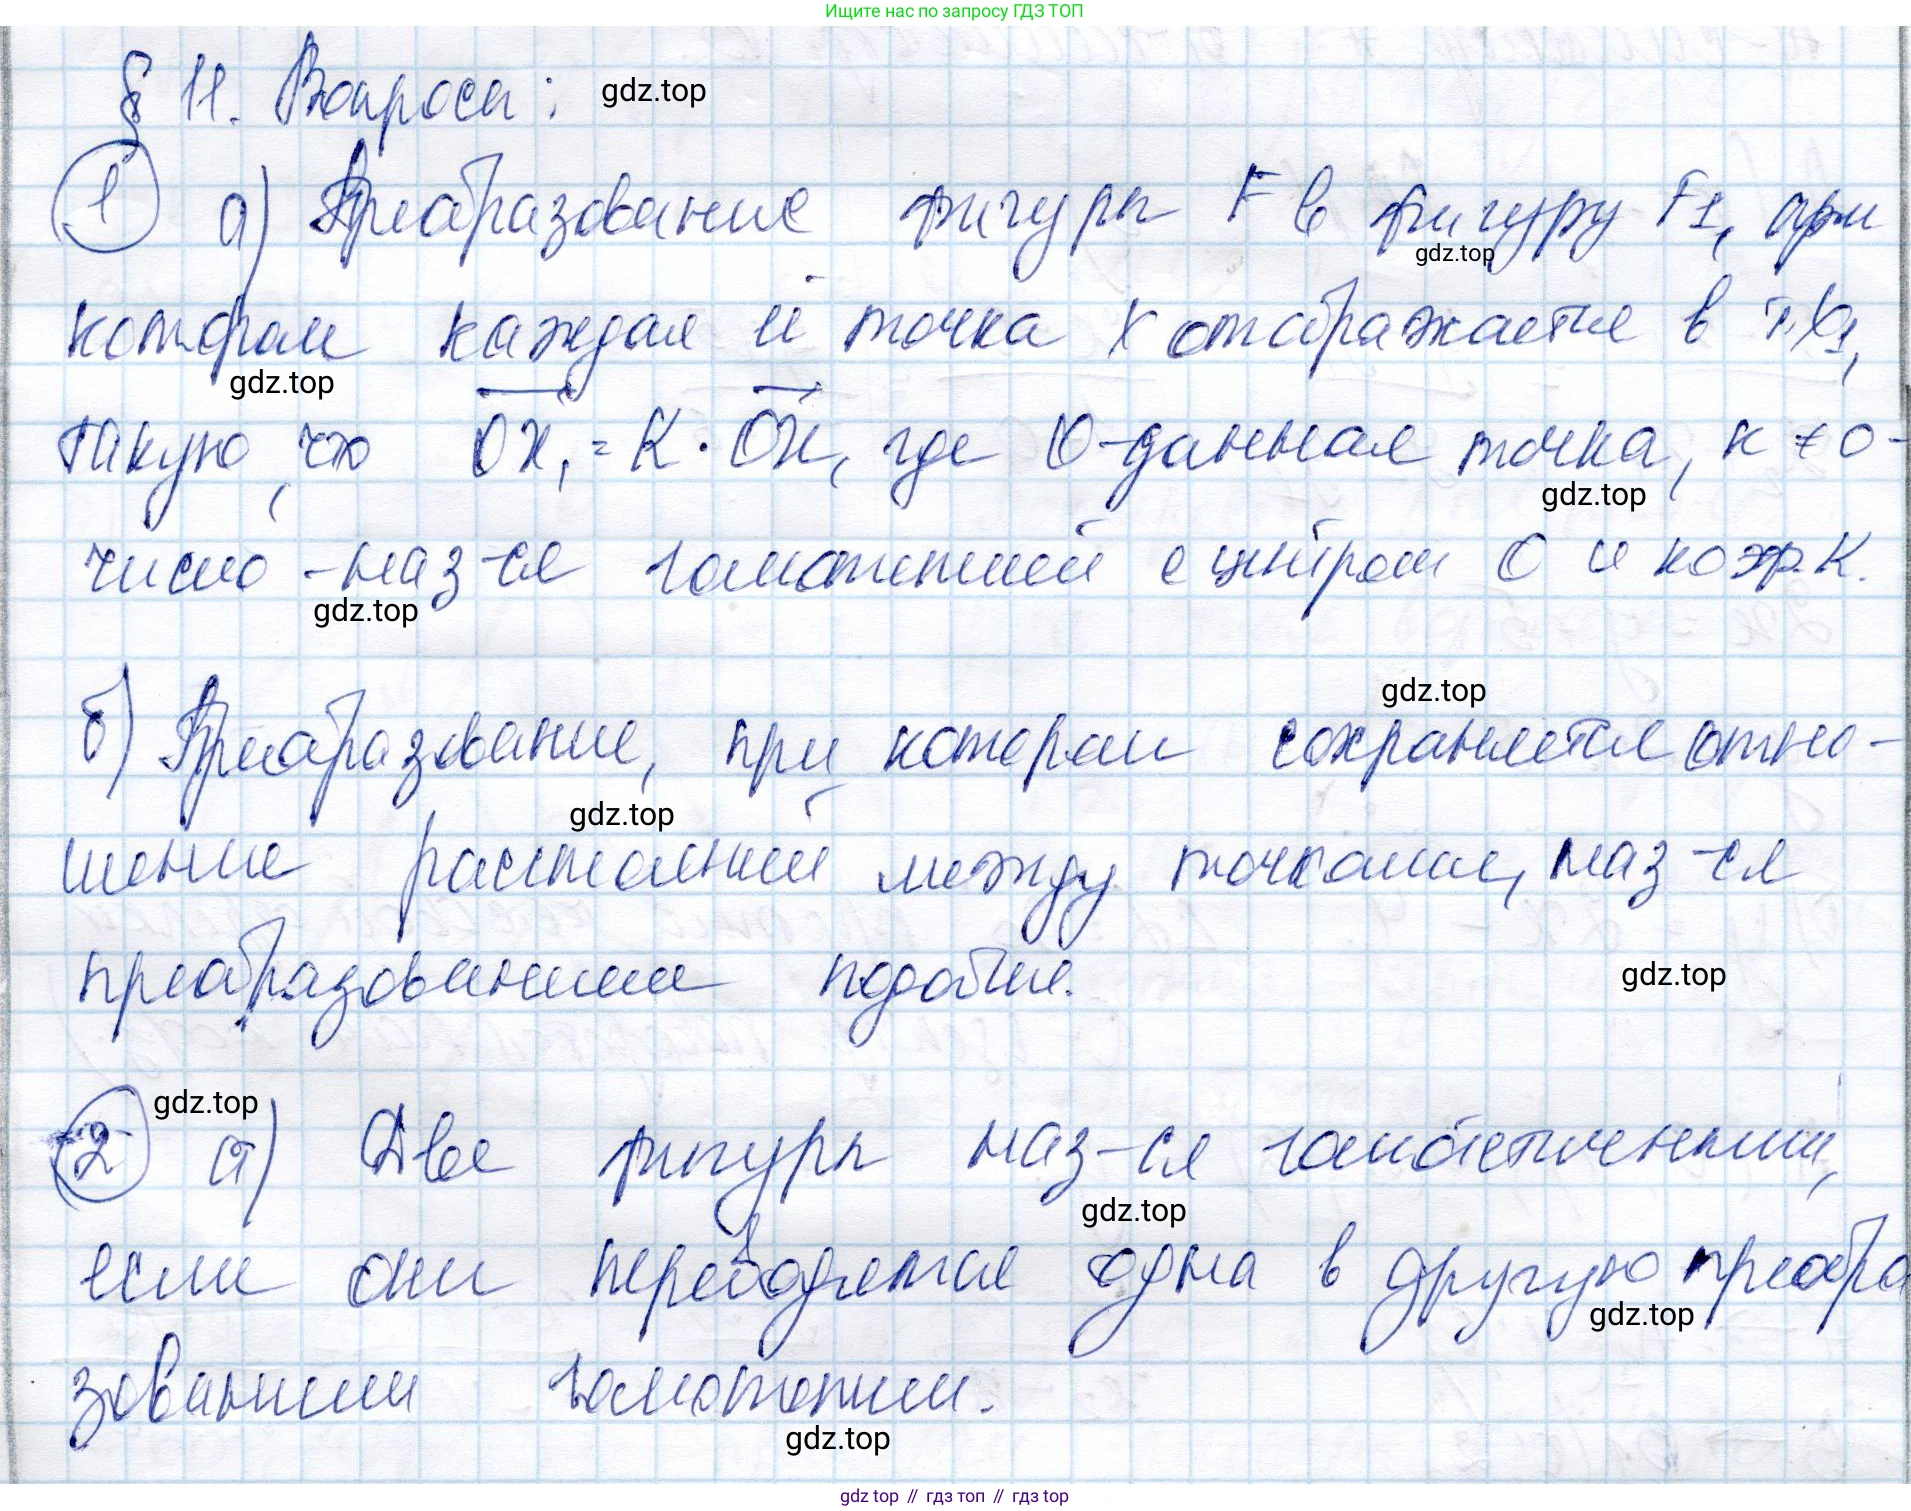 Ищите нас по запросу ГДЗ ТОП
§ 11. Вопросы: gdz.top
1 а) Преобразование фигуры F в фигуру F1, при
gdz.top
котором каждая её точка X отображается в т. X1,
gdz.top
такую, что OX1 = K · OX, где O - данная точка, к ≠ 0 -
gdz.top
число - наз-ся гомотетией с центром O и коэф. K.
gdz.top
gdz.top
б) Преобразование, при котором сохраняется отно-
gdz.top
шение расстояний между точками, наз-ся
преобразованием подобия.
gdz.top
gdz.top
2 а) Две фигуры наз-ся гомотетичными,
gdz.top
если они переводятся одна в другую преобра
gdz.top
зованием гомотетии.
gdz.top
gdz top // гдз топ // гдз top